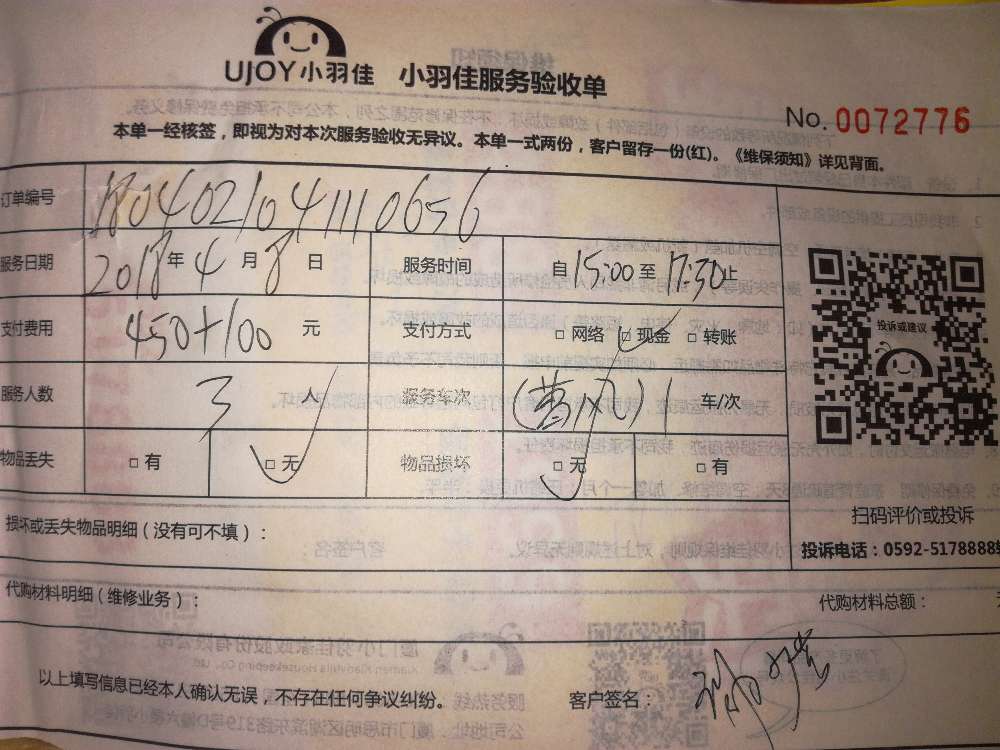 UJOY小羽佳 小羽佳服务验收单
No. 0072776
本单一经核签，即视为对本次服务验收无异议。本单一式两份，客户留存一份(红)。《维保须知》详见背面。
订单编号 18040210411110656
服务日期 2018年4月8日 服务时间 自15:00至17:30止
支付费用 450+100元 支付方式 □网络 □现金 □转账
投诉或建议
服务人数 3人 服务车次 1 车/次
物品丢失 □有 □无 物品损坏 □无 □有
扫码评价或投诉
损坏或丢失物品明细（没有可不填）：
投诉电话：0592-5178888
代购材料明细（维修业务）：
代购材料总额：
以上填写信息已经本人确认无误，不存在任何争议纠纷。 客户签名：